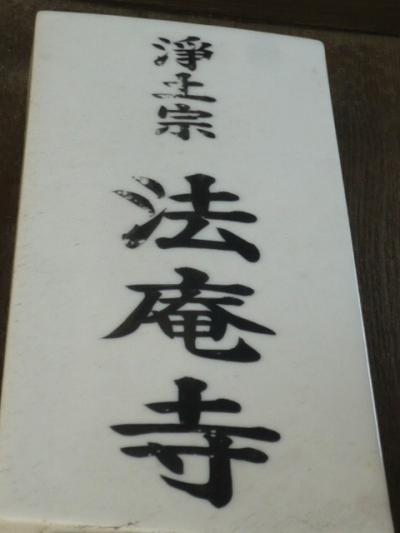 淨土宗
法庵寺